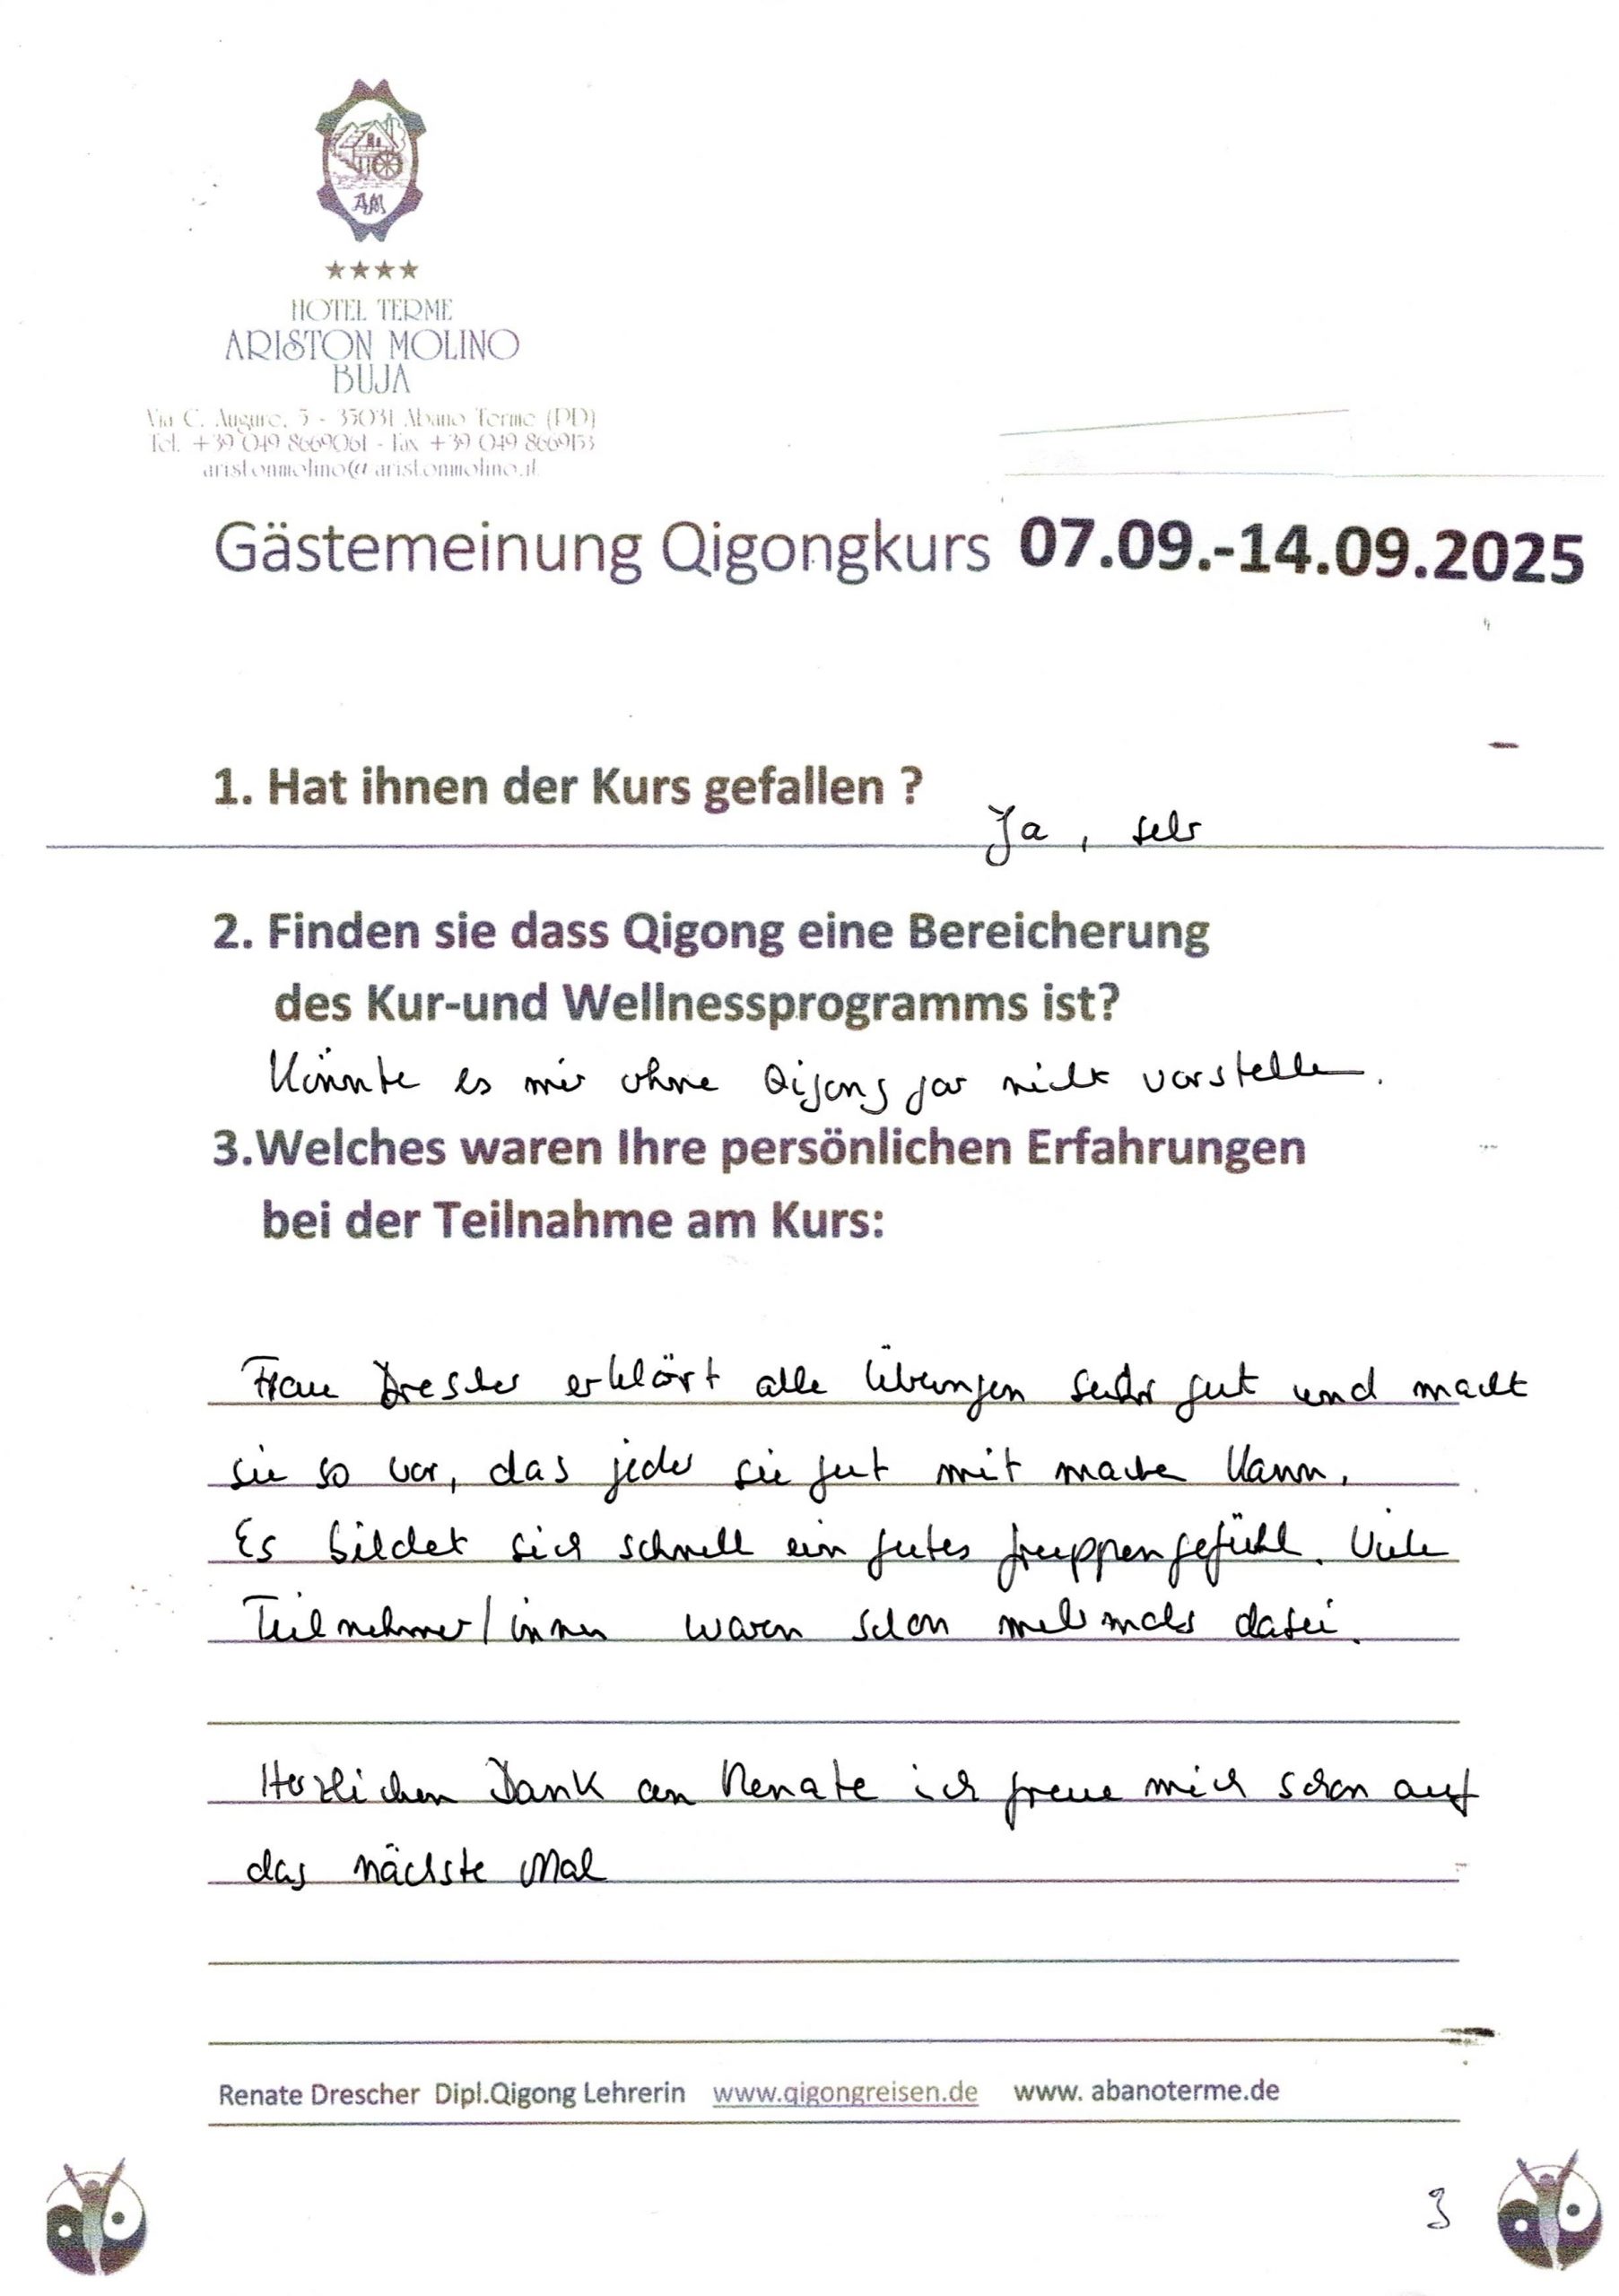 AM
HOTEL TERME
ARISTON MOLINO
BUJA
Via C. Augure, 5 - 35031 Abano Terme (PD)
Tel. +39 049 8669061 - Fax +39 049 8669153
aristonmolino@aristonmolino.it
Gästemeinung Qigongkurs 07.09.-14.09.2025
1. Hat ihnen der Kurs gefallen ?
Ja, sehr
2. Finden sie dass Qigong eine Bereicherung
des Kur-und Wellnessprogramms ist?
Könnte es mir ohne Qigong gar nicht vorstellen.
3.Welches waren Ihre persönlichen Erfahrungen
bei der Teilnahme am Kurs:
Frau Drescher erklärt alle Übungen sehr gut und macht
sie so vor, das jeder sie gut mit machen kann.
Es bildet sich schnell ein gutes Gruppengefühl. Viele
Teilnehmer/innen waren schon mehrmals dabei.
Herzlichen Dank an Renate ich freue mich schon auf
das nächste Mal
Renate Drescher Dipl.Qigong Lehrerin www.qigongreisen.de www. abanoterme.de